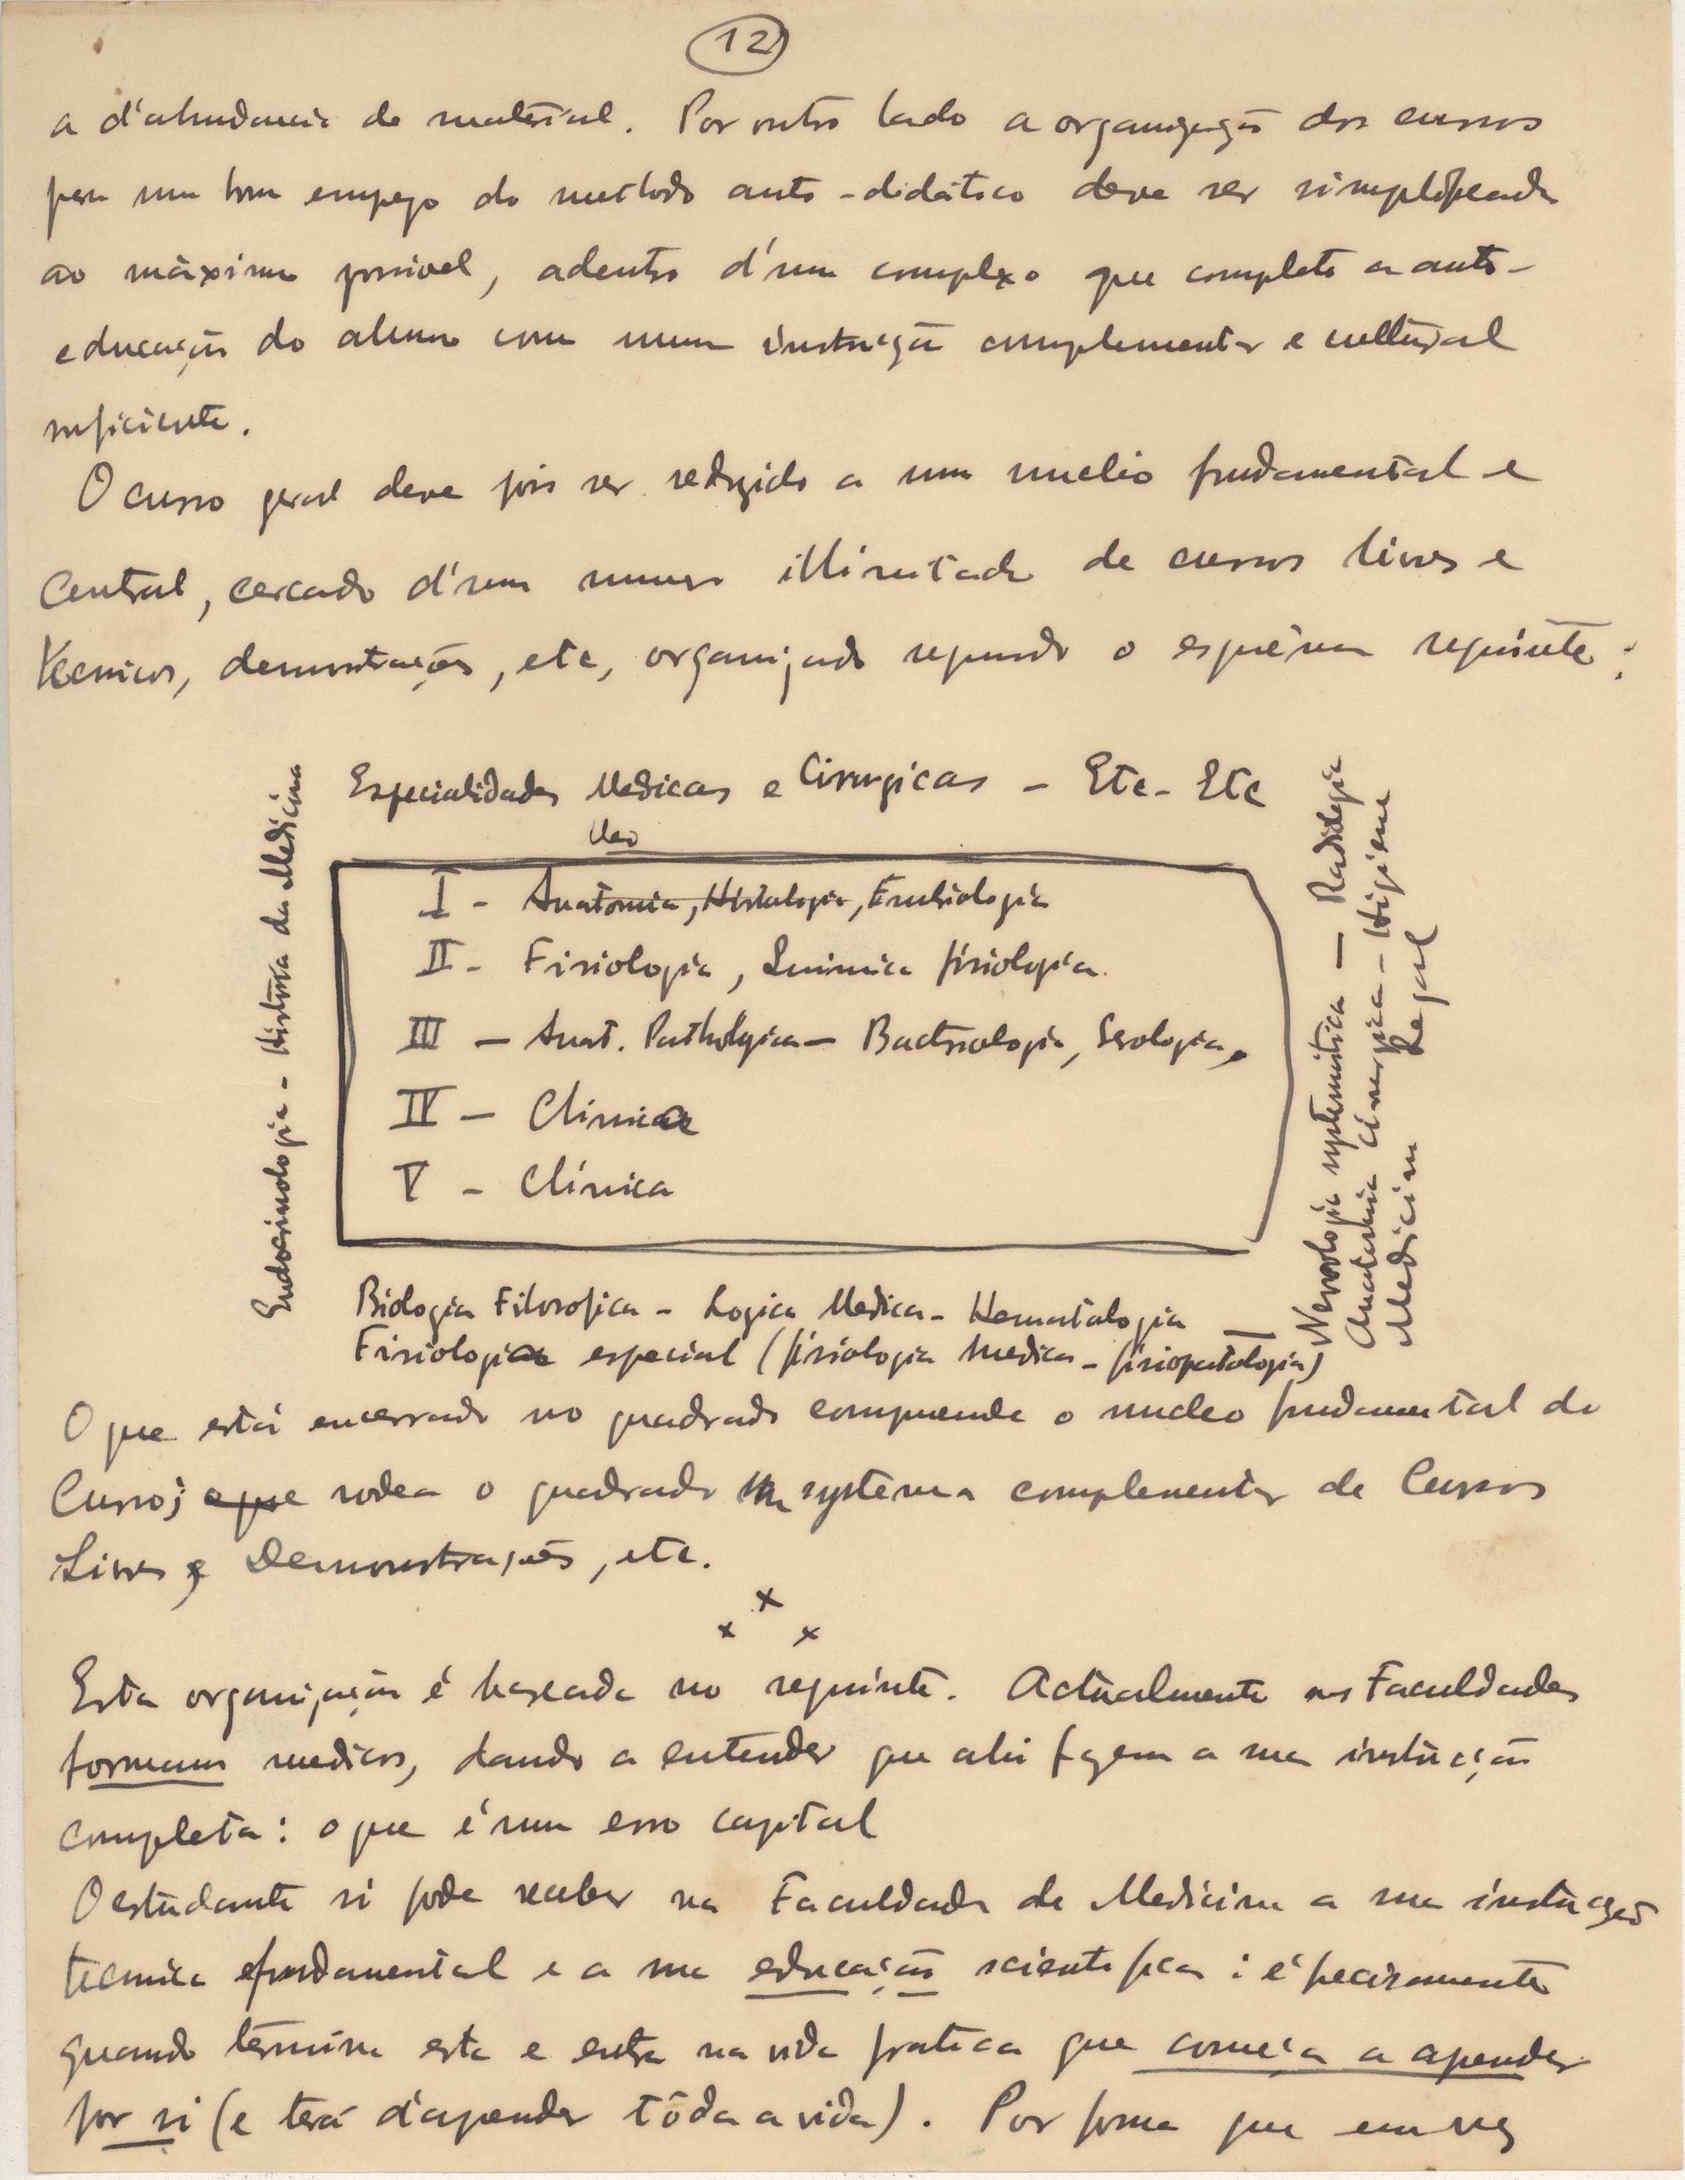 12
a d'abundancia de material. Por outro lado a organização dos cursos
para um bom emprego do methodo auto-didático deve ser simplificada
ao máximo possivel, adentro d'um complexo que complete a auto-
educação do aluno com uma instrução complementar e cultural
suficiente.
O curso geral deve pois ser reduzido a um nucleo fundamental e
Central, cercado d'um numero illimitado de cursos livres e
technicos, demonstrações, etc, organizado segundo o esquêma seguinte:
Especialidades Medicas e Cirurgicas - Etc - Etc
Endocrinologia - História da Medicina
I - Anatomia, Histologia, Embriologia
II - Fisiologia, Quimica fisiologia.
III - Anat. Pathologica - Bacteriologia, Serologia,
IV - Clinica
V - Clínica
Nevrologia systemática - Radiologia
Anatomia cirurgica - Higiene
Medicina Legal
Biologia Filosofica - Logica Medica - Hematologia -
Fisiologia especial (fisiologia medica - fisiopatologia)
O que está encerrado no quadrado comprende o nucleo fundamental do
Curso; o que rodea o quadrado um systema complementar de Cursos
Livres e Demonstrações, etc.
x x x
Esta organização é baseada no seguinte. Actualmente as Faculdades
formam medicos, dando a entender que ahi fazem a sua instrução
completa: o que é um erro capital
O estudante si pode receber na Faculdade de Medicina a sua instrucção
tecnica fundamental e a sua educação scientifica: é precisamente
quando termina esta e entra na vida pratica que começa a aprender
por si (e terá d'aprender tôda a vida). Por forma que em vez